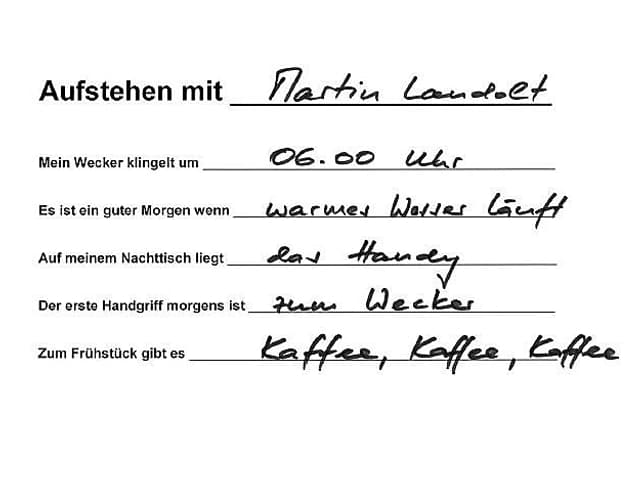 Aufstehen mit Martin Landolt
Mein Wecker klingelt um 06.00 Uhr
Es ist ein guter Morgen wenn warmes Wasser läuft
Auf meinem Nachttisch liegt das Handy
Der erste Handgriff morgens ist zum Wecker
Zum Frühstück gibt es Kaffee, Kaffee, Kaffee